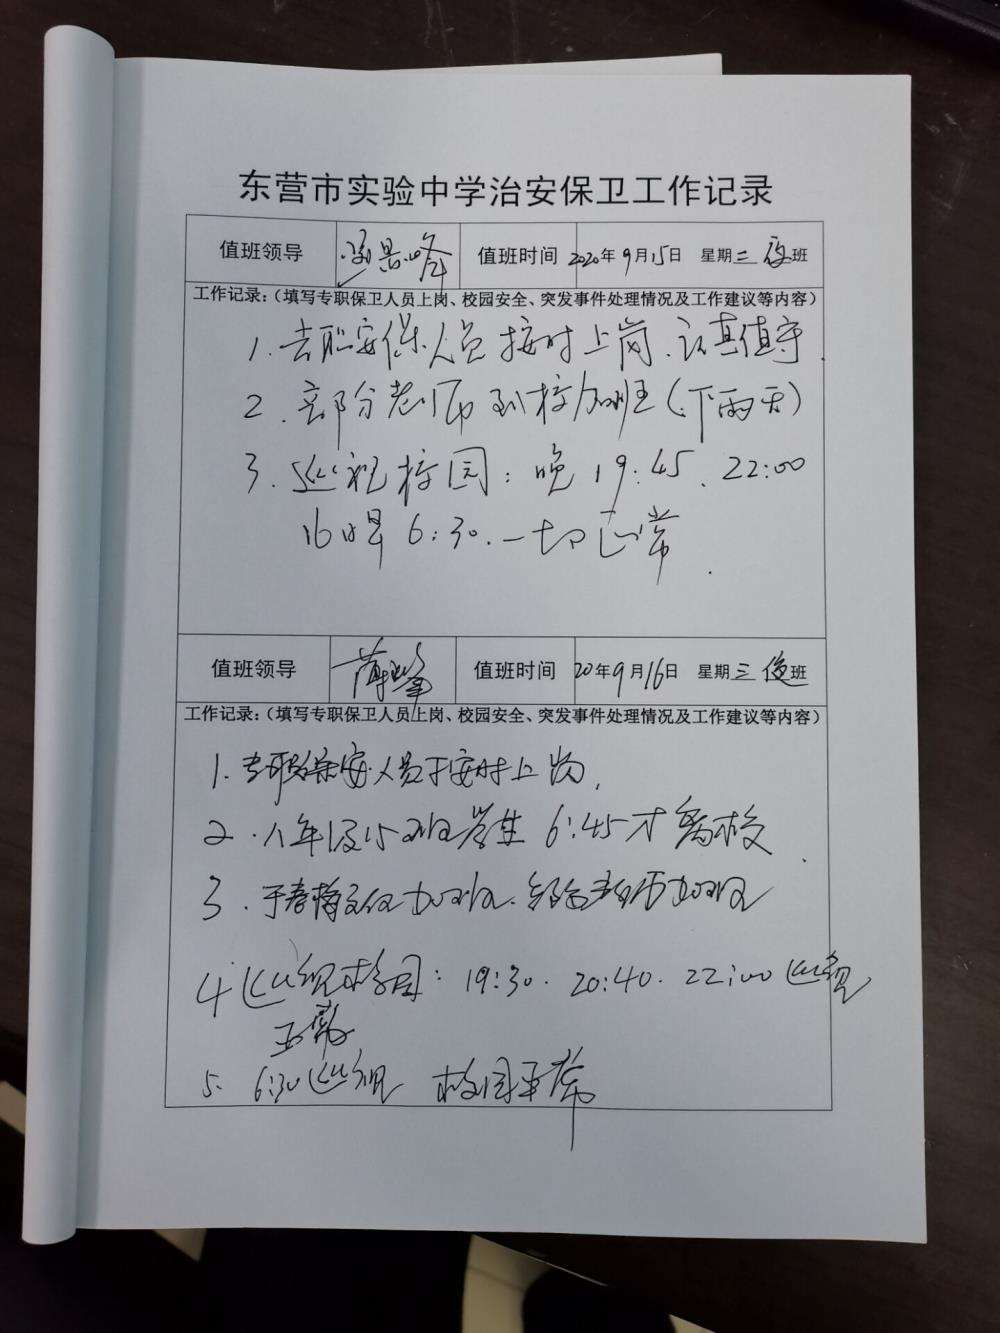 东营市实验中学治安保卫工作记录
值班领导 景峰 值班时间 2020年9月15日 星期二 夜班
工作记录：（填写专职保卫人员上岗、校园安全、突发事件处理情况及工作建议等内容）
1. 专职安保人员按时上岗、认真值守.
2. 部分老师到校加班（下雨天）
3. 巡视校园：晚19:45、22:00
16日早6:30.一切正常.
值班领导 薛峰 值班时间 20年9月16日 星期三 夜班
工作记录：（填写专职保卫人员上岗、校园安全、突发事件处理情况及工作建议等内容）
1. 专职保安人员按时上岗,
2. 八年级15班学生6:45才离校.
3. 于春梅 加班. 老师加班
4 巡视校园：19:30. 20:40. 22:00巡视
正常
5. 6:30巡视 校园平常